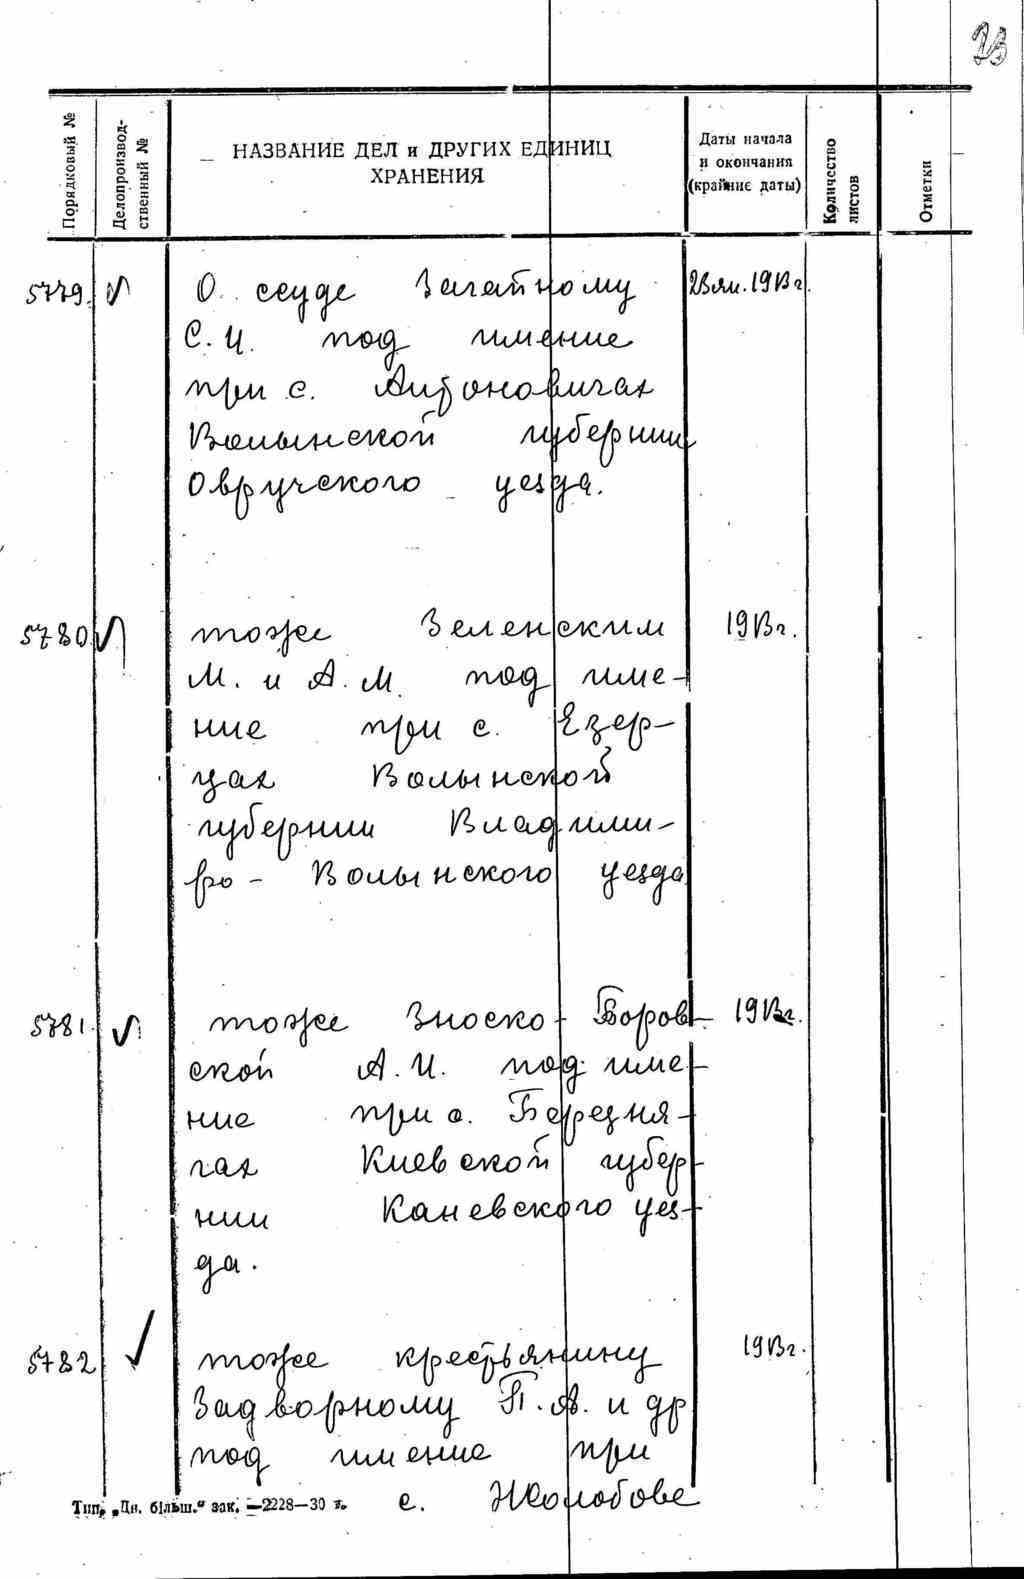 23
Порядковый №
Делопроизвод-
ственный №
НАЗВАНИЕ ДЕЛ и ДРУГИХ ЕДИНИЦ
ХРАНЕНИЯ
Даты начала
и окончания
(крайние даты)
Количество
листов
Отметки
5779. О ссуде Загатному 23 ян. 1913 г.
С. И. под имение
при с. Антоновичах
Волынской губернии
Овручского уезда.
5780 тоже Зеленским 1913 г.
М. и А. М. под име-
ние при с. Езер-
цах Волынской
губернии Владими-
ро - Волынского уезда
5781. тоже Зноско - Боров- 1913г.
ской А. И. под име-
ние при с. Березня-
гах Киевской губер-
нии Каневского уез-
да.
5782 тоже крестьянину 1913г.
Задворному П. А. и др
под имение при
с. Жолобове
Тип. „Дн. більш." зак. —2228—30 г.